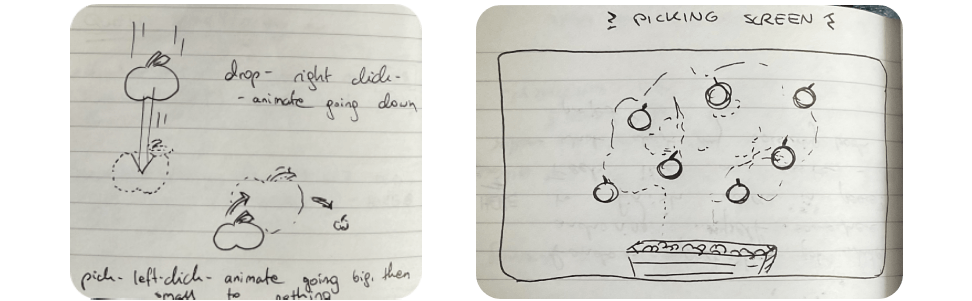 drop- right click-
- animate going down
pick- left-click- animate going big, then
small to nothing
PICKING SCREEN